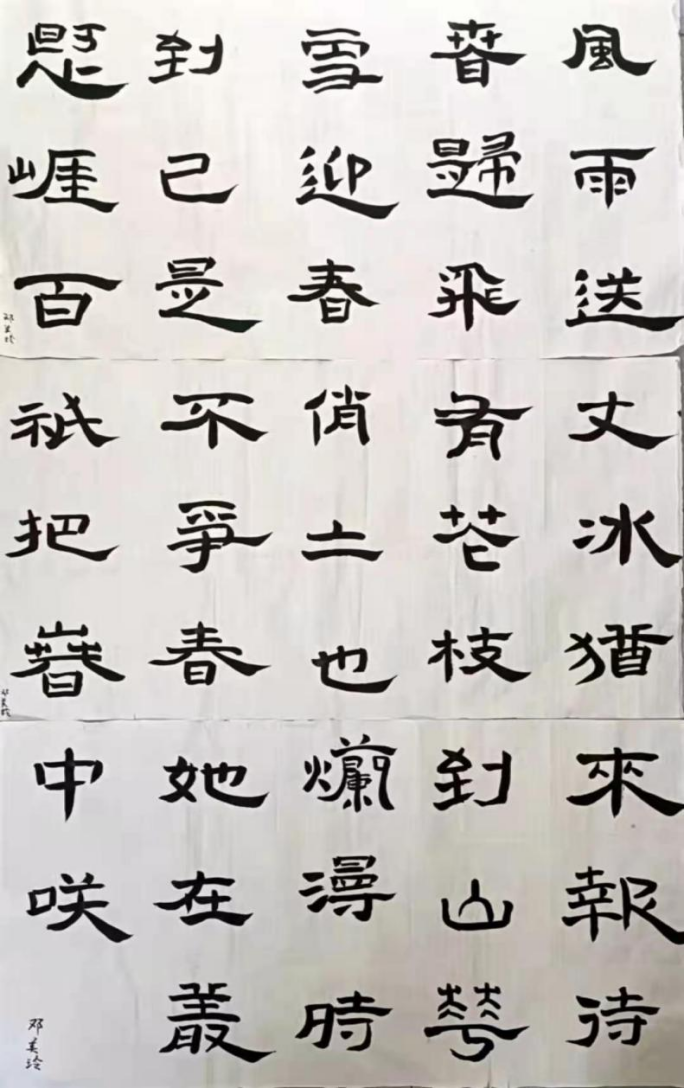 風雨送
春歸飛
雪迎春
到已是
懸崖百
邓美玲
丈冰猶
有花枝
俏土也
不爭春
祇把春
邓美玲
來報待
到山華
爛漫時
她在叢
中咲
邓美玲